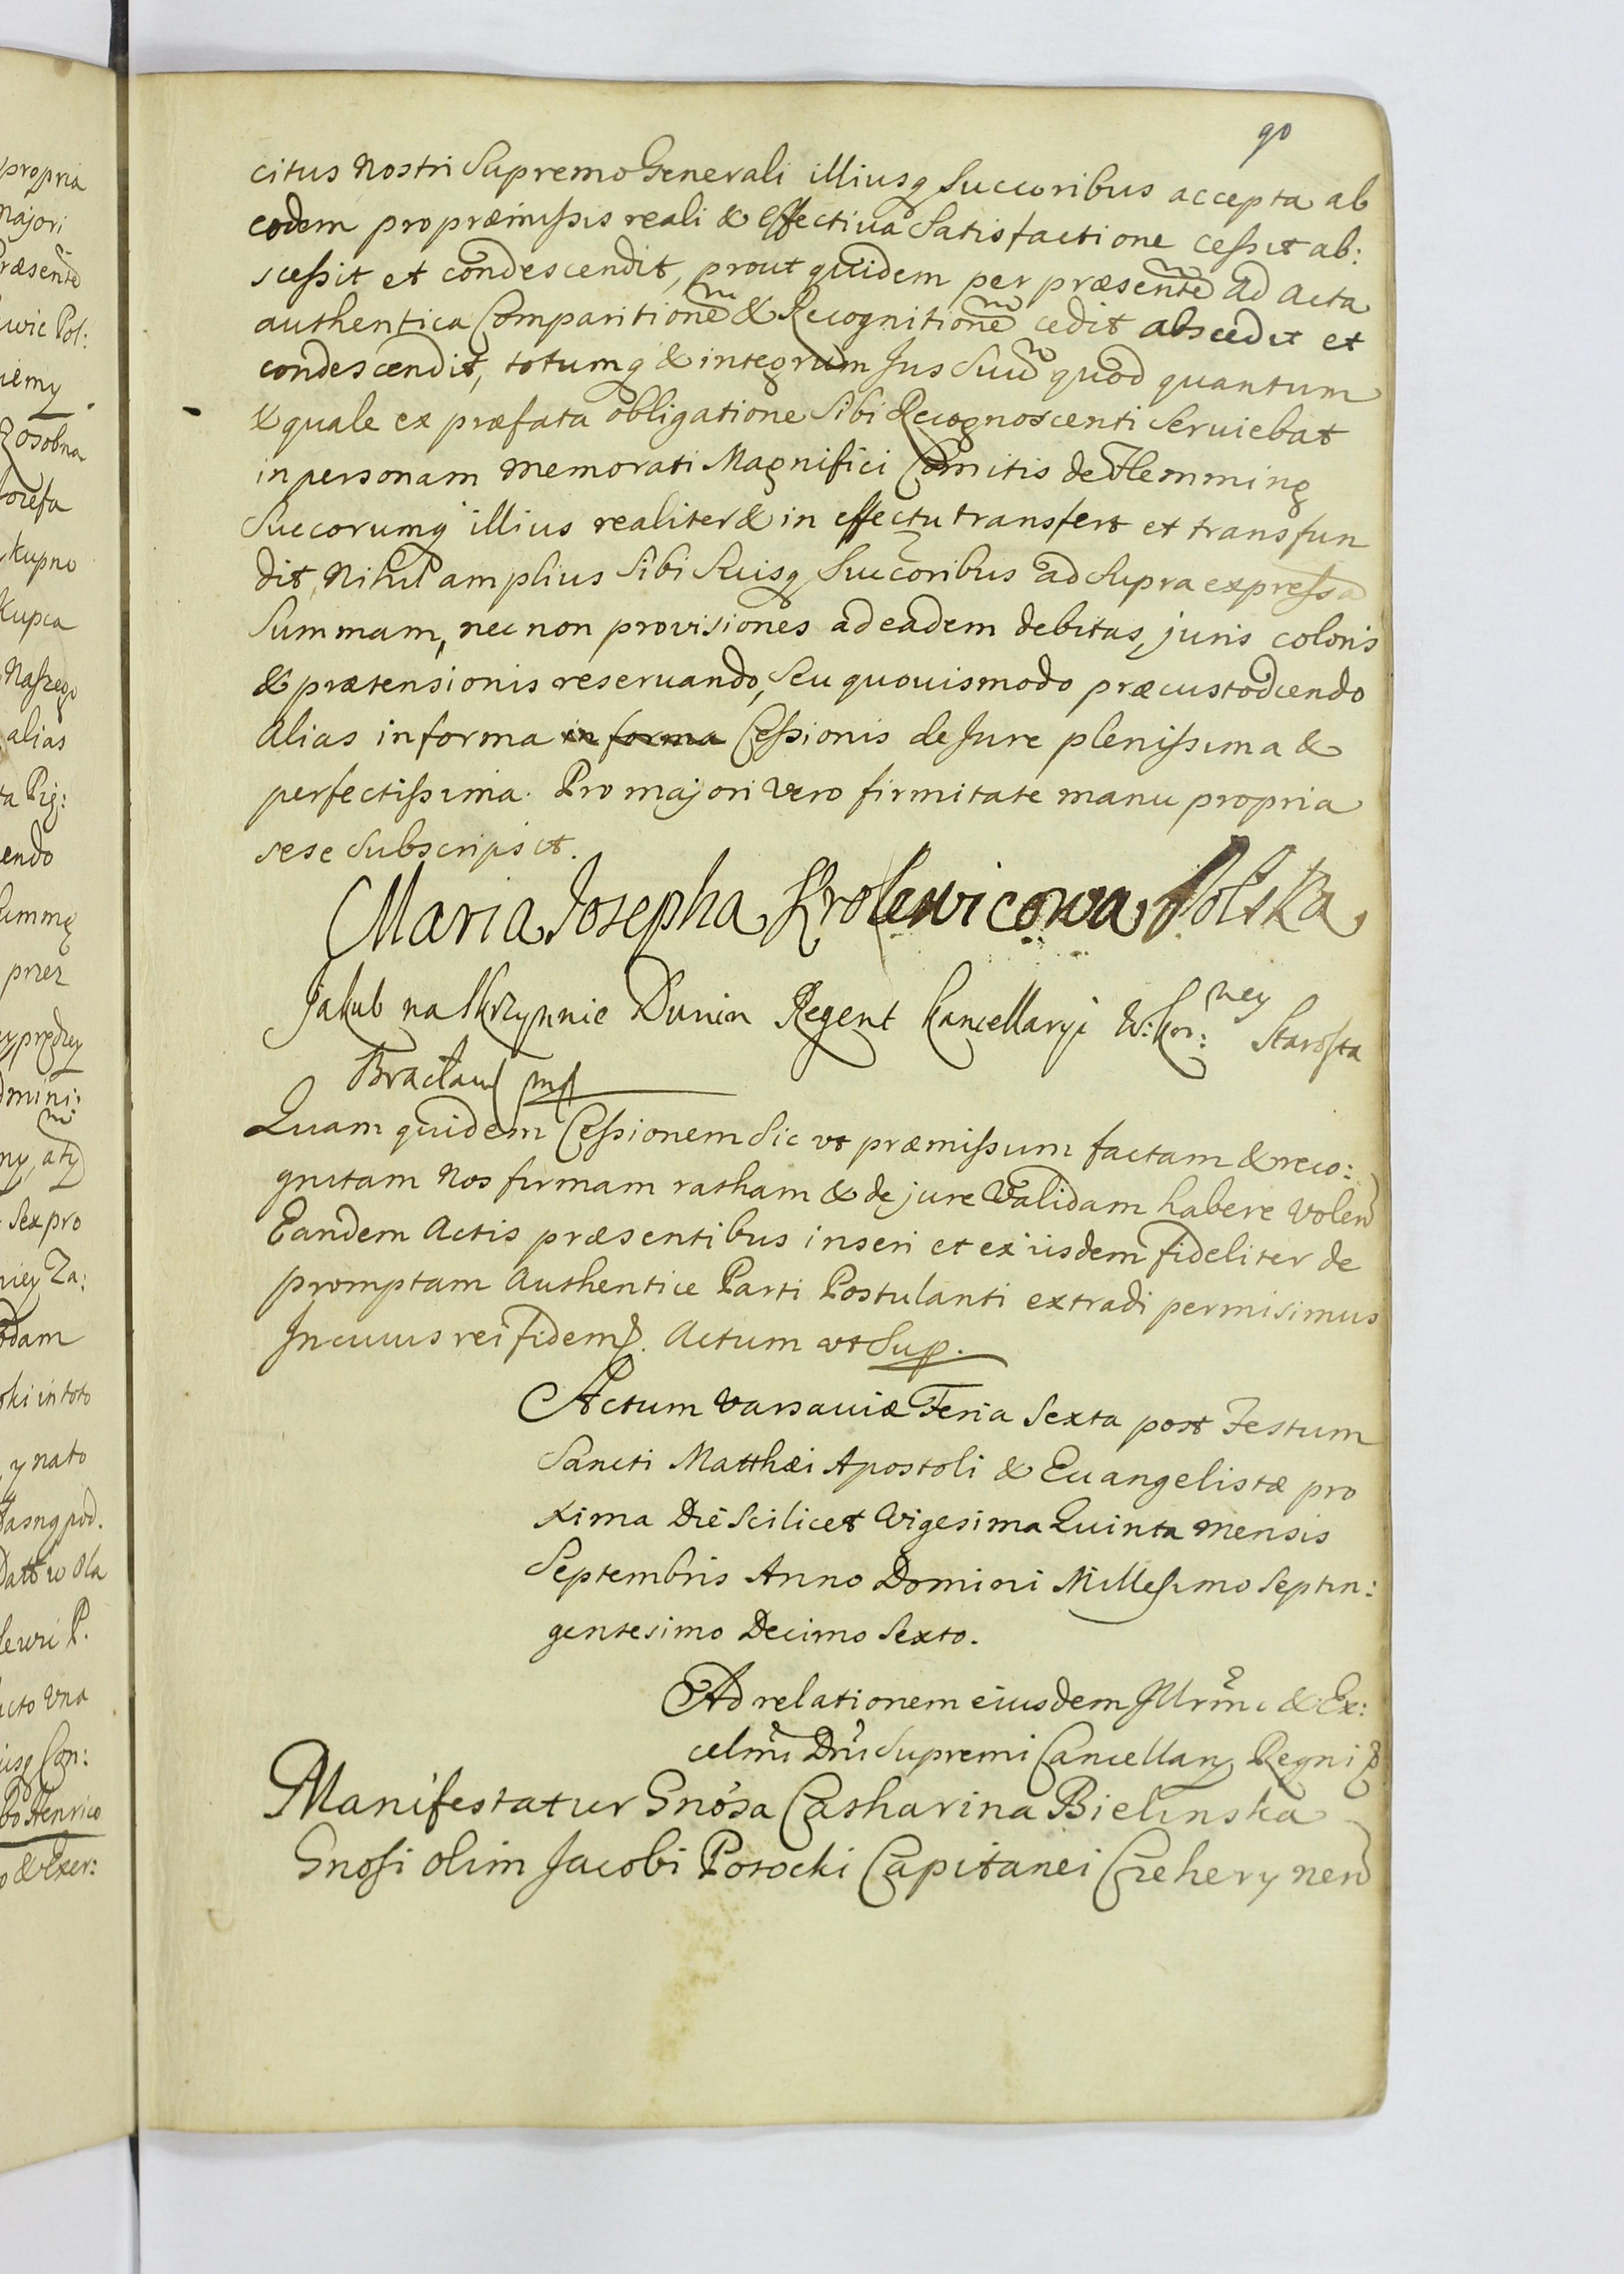 90
citus Nostri Supremo Generali illiusq Succoribus accepta ab
eodem pro præmissis reali & effectiua Satisfactione cessit ab:
scessit et condescendit, prout quidem per præsentẽ ad Acta
authentica Comparitionẽ & Recognitionẽ cedit abscedit et
condescendit, totumq & integrum Jus Suũ quod quantum
& quale ex præfata obligatione Sibi Recognoscenti Seruiebat
in personam memorati Magnifici Comitis de Flemming
Succorumq illius realiter & in effectu transfert et transfun
dit, Nihil amplius Sibi Suisq Succoribus ad Supra expressã
Summam, nec non provisiones ad eadem debitas, juris coloris
& prætensionis reseruando, Seu quouismodo præcustodiendo
Alias in forma in forma Cessionis de Jure plenissima &
perfectissima. Pro majori vero firmitate manu propria
sese Subscripsit.
Maria Josepha Krolewicowa Polska
Jakub na Skrzynnie Dunin Regent Kancellaryi W: Kor:ney Starosta
Bracław mp
Quam quidem Cessionem Sic vt præmissum factam & reco:
gnitam Nos firmam ratham & de jure Validam habere Volen
Eandem Actis præsentibus inseri et ex iisdem fideliter de
promptam Authentice Parti Postulanti extradi permisimus
In cuius rei fidem. Actum vt Sup.
Actum Varsaviæ Feria Sexta post Festum
Sancti Matthæi Apostoli & Euangelistæ pro
xima Die Scilicet Vigesima Quinta mensis
Septembris Anno Domini Millesimo Septin:
gentesimo Decimo Sexto.
Ad relationem eiusdem Illrmi & Ex:
celmi Dni Supremi Cancellarij Regni
Manifestatur Gnosa Catharina Bielinska
Gnosi olim Jacobi Potocki Capitanei Czeherynen
propria
majori
Præsentẽ
wic Pol:
iemy
osobna
Jozefa
kupno
Kupca
Naszego
alias
ta Pig:
endo
Summę
przez
prędzey
dmini:
Sex pro
niey Za:
odam
ski in toto
y nato
Jasnq pod.
Datt w Ola
lewic P.
acto Vna
iusq Con:
Henrico
& Exer: